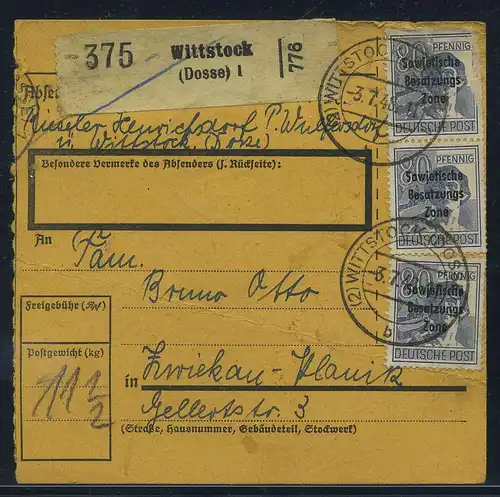 375 Wittstock
(Dosse) 1
776
Absen
Henrichsdorf P. Wulfersdorf
ü. Wittstock (Dosse)
Besondere Vermerke des Absenders (s. Rückseite):
An
Fam.
Bruno Otto
Freigebühr (Rpf)
Postgewicht (kg)
11 1/2
in Zwickau-Planitz
Gellertstr. 3
(Straße, Hausnummer, Gebäudeteil, Stockwerk)
80 PFENNIG
Sowjetische
Besatzungs
Zone
DEUTSCHE POST
80 PFENNIG
Sowjetische
Besatzungs
Zone
DEUTSCHE POST
80 PFENNIG
Sowjetische
Besatzungs
Zone
DEUTSCHE POST
(2) WITTSTOCK
-3.7.48
(2) WITTSTOCK (DOSSE)
-3.7.48
b